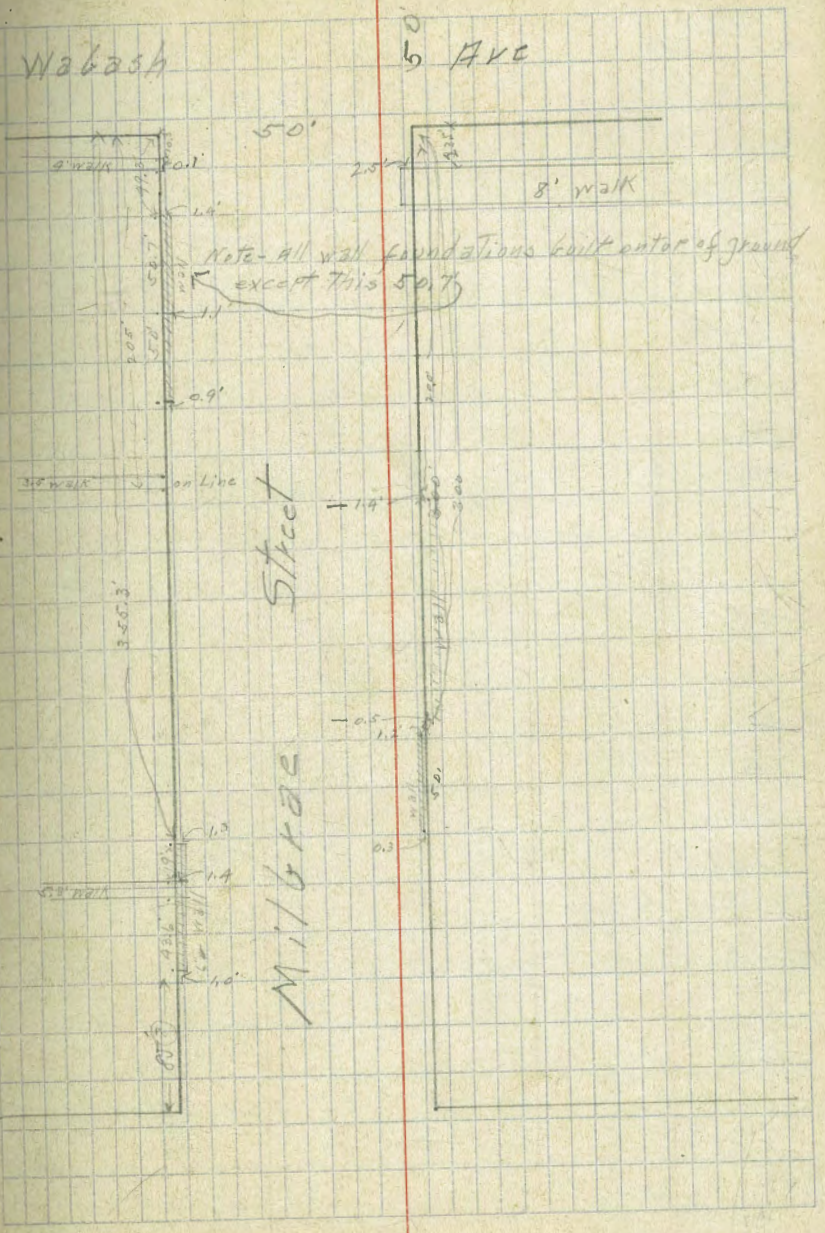 Wabash
50'
Ave
50'
9' walk
0.1'
2.5'
8' walk
1.4'
50.7'
wall
Note - All wall foundations built on top of ground
except this 50.7
1.1'
50'
205'
0.9'
200'
walk
on Line
1.4'
300
Street
355.3'
wall
0.5
1.2
wall
50.
0.3
1.3
9'
1.4
walk
43.6'
wall
1.0'
Milbrae